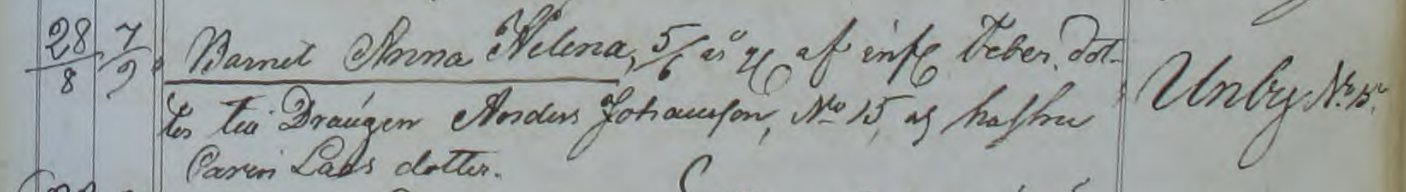 28/8 7/9 Barnet Anna Helena, 5/6 år af inf. feber, dot-
ter till Dragen Anders Johansson, No 15, och hustru
Carin Lars dotter.
Unby No 15.